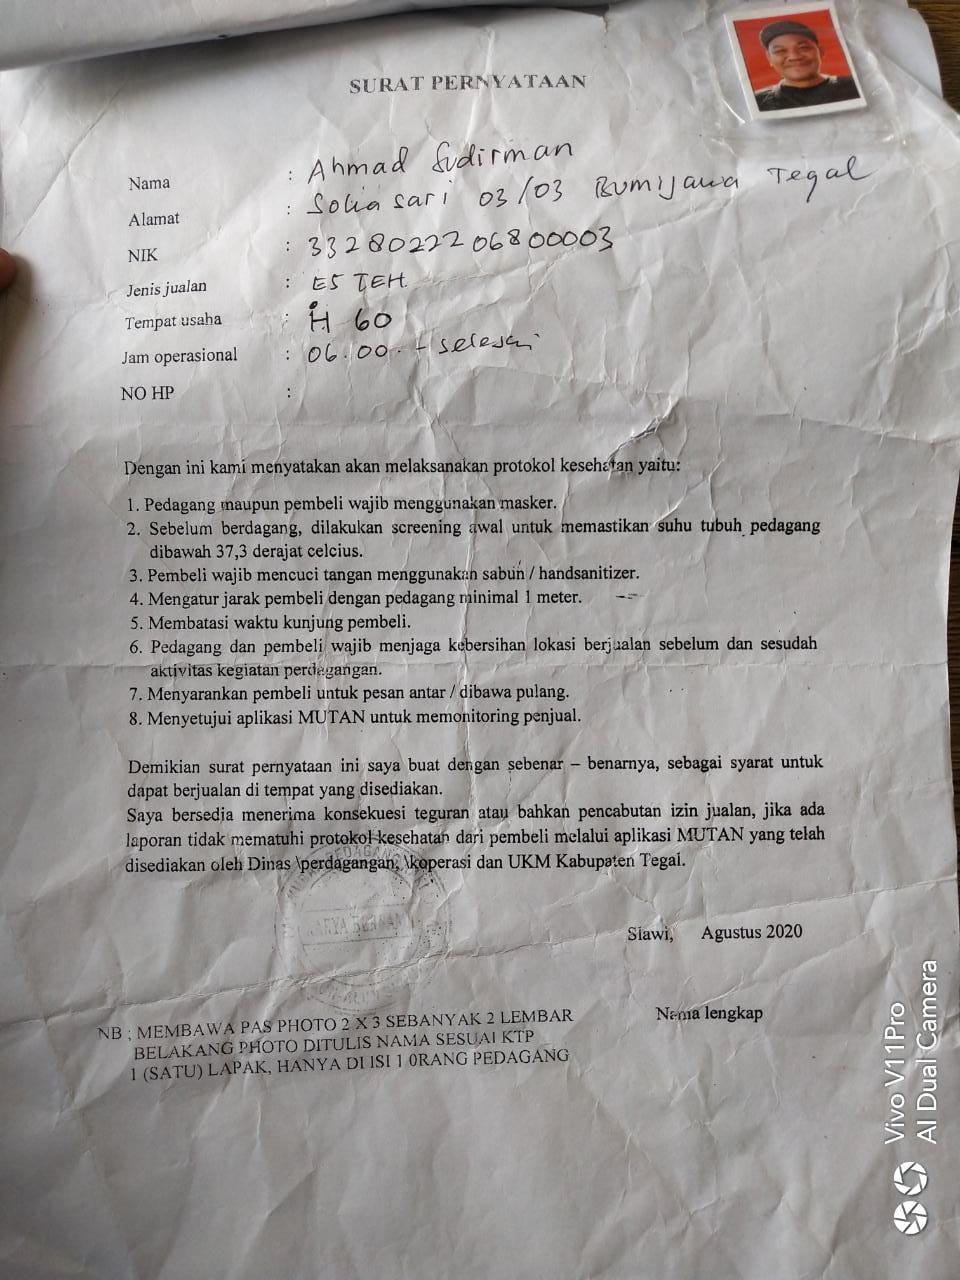 SURAT PERNYATAAN
Nama : Ahmad Sudirman
Alamat : Sokasari 03/03 Bumijawa Tegal
NIK : 3328022206800003
Jenis jualan : ES TEH
Tempat usaha : H 60
Jam operasional : 06.00 - selesai
NO HP :
Dengan ini kami menyatakan akan melaksanakan protokol kesehatan yaitu:
1. Pedagang maupun pembeli wajib menggunakan masker.
2. Sebelum berdagang, dilakukan screening awal untuk memastikan suhu tubuh pedagang
dibawah 37,3 derajat celcius.
3. Pembeli wajib mencuci tangan menggunakan sabun / handsanitizer.
4. Mengatur jarak pembeli dengan pedagang minimal 1 meter.
5. Membatasi waktu kunjung pembeli.
6. Pedagang dan pembeli wajib menjaga kebersihan lokasi berjualan sebelum dan sesudah
aktivitas kegiatan perdagangan.
7. Menyarankan pembeli untuk pesan antar / dibawa pulang.
8. Menyetujui aplikasi MUTAN untuk memonitoring penjual.
Demikian surat pernyataan ini saya buat dengan sebenar – benarnya, sebagai syarat untuk
dapat berjualan di tempat yang disediakan.
Saya bersedia menerima konsekuesi teguran atau bahkan pencabutan izin jualan, jika ada
laporan tidak mematuhi protokol kesehatan dari pembeli melalui aplikasi MUTAN yang telah
disediakan oleh Dinas \perdagangan, \koperasi dan UKM Kabupaten Tegal.
Slawi, Agustus 2020
Nama lengkap
NB ; MEMBAWA PAS PHOTO 2 X 3 SEBANYAK 2 LEMBAR
BELAKANG PHOTO DITULIS NAMA SESUAI KTP
1 (SATU) LAPAK, HANYA DI ISI 1 0RANG PEDAGANG
Vivo V11Pro
AI Dual Camera